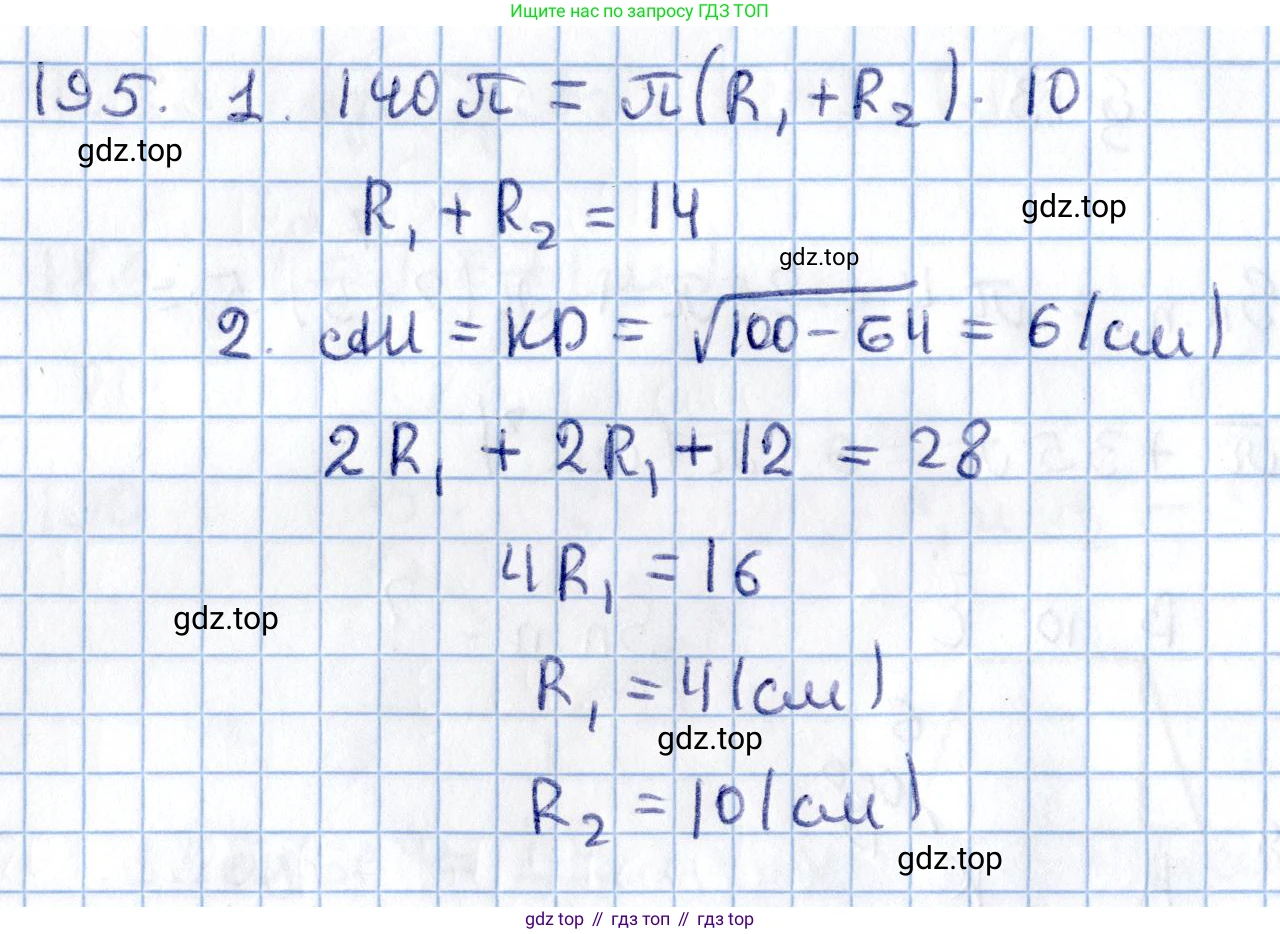 Ищите нас по запросу ГДЗ ТОП
195. 1. 140π = π(R₁ + R₂) · 10
gdz.top
R₁ + R₂ = 14
gdz.top
gdz.top
2. AM = KD = √(100 - 64) = 6 (см)
2R₁ + 2R₁ + 12 = 28
4R₁ = 16
gdz.top
R₁ = 4 (см)
gdz.top
R₂ = 10 (см)
gdz.top
gdz top // гдз топ // гдз top